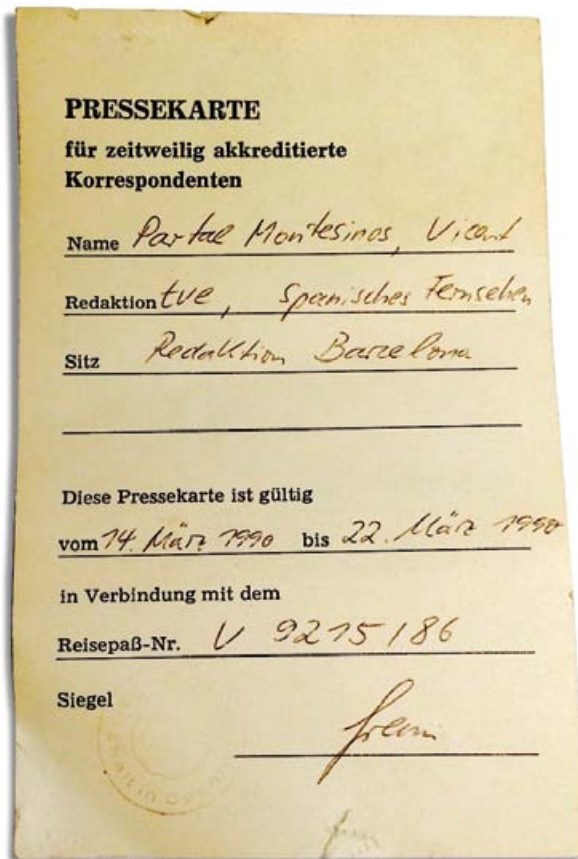 PRESSEKARTE
für zeitweilig akkreditierte
Korrespondenten
Name Partal Montesinos, Vicent
Redaktion tve, Spanisches Fernsehen
Sitz Redaktion Barcelona
Diese Pressekarte ist gültig
vom 14. März 1990 bis 22. März 1990
in Verbindung mit dem
Reisepaß-Nr. V 9215186
Siegel